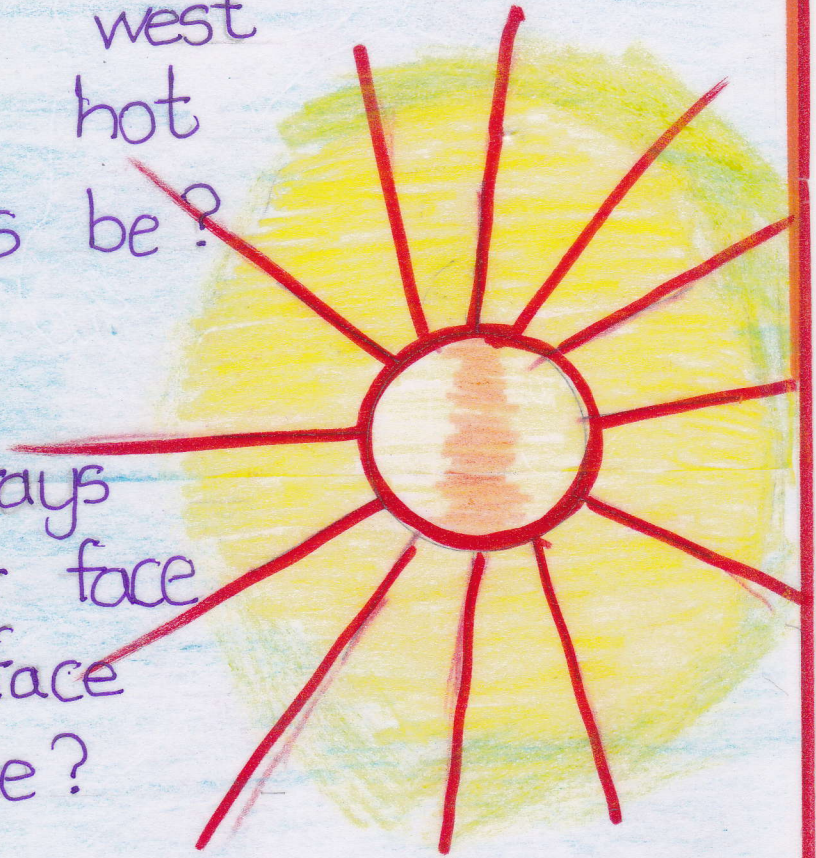 west
hot
s be?
ays
face
face
e?